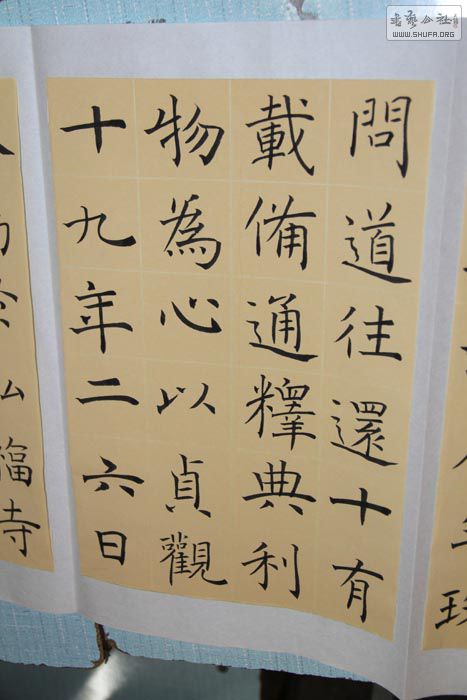 書藝公社
WWW.SHUFA.ORG
問道往還十有
載備通釋典利
物為心以貞觀
十九年二六日
福寺